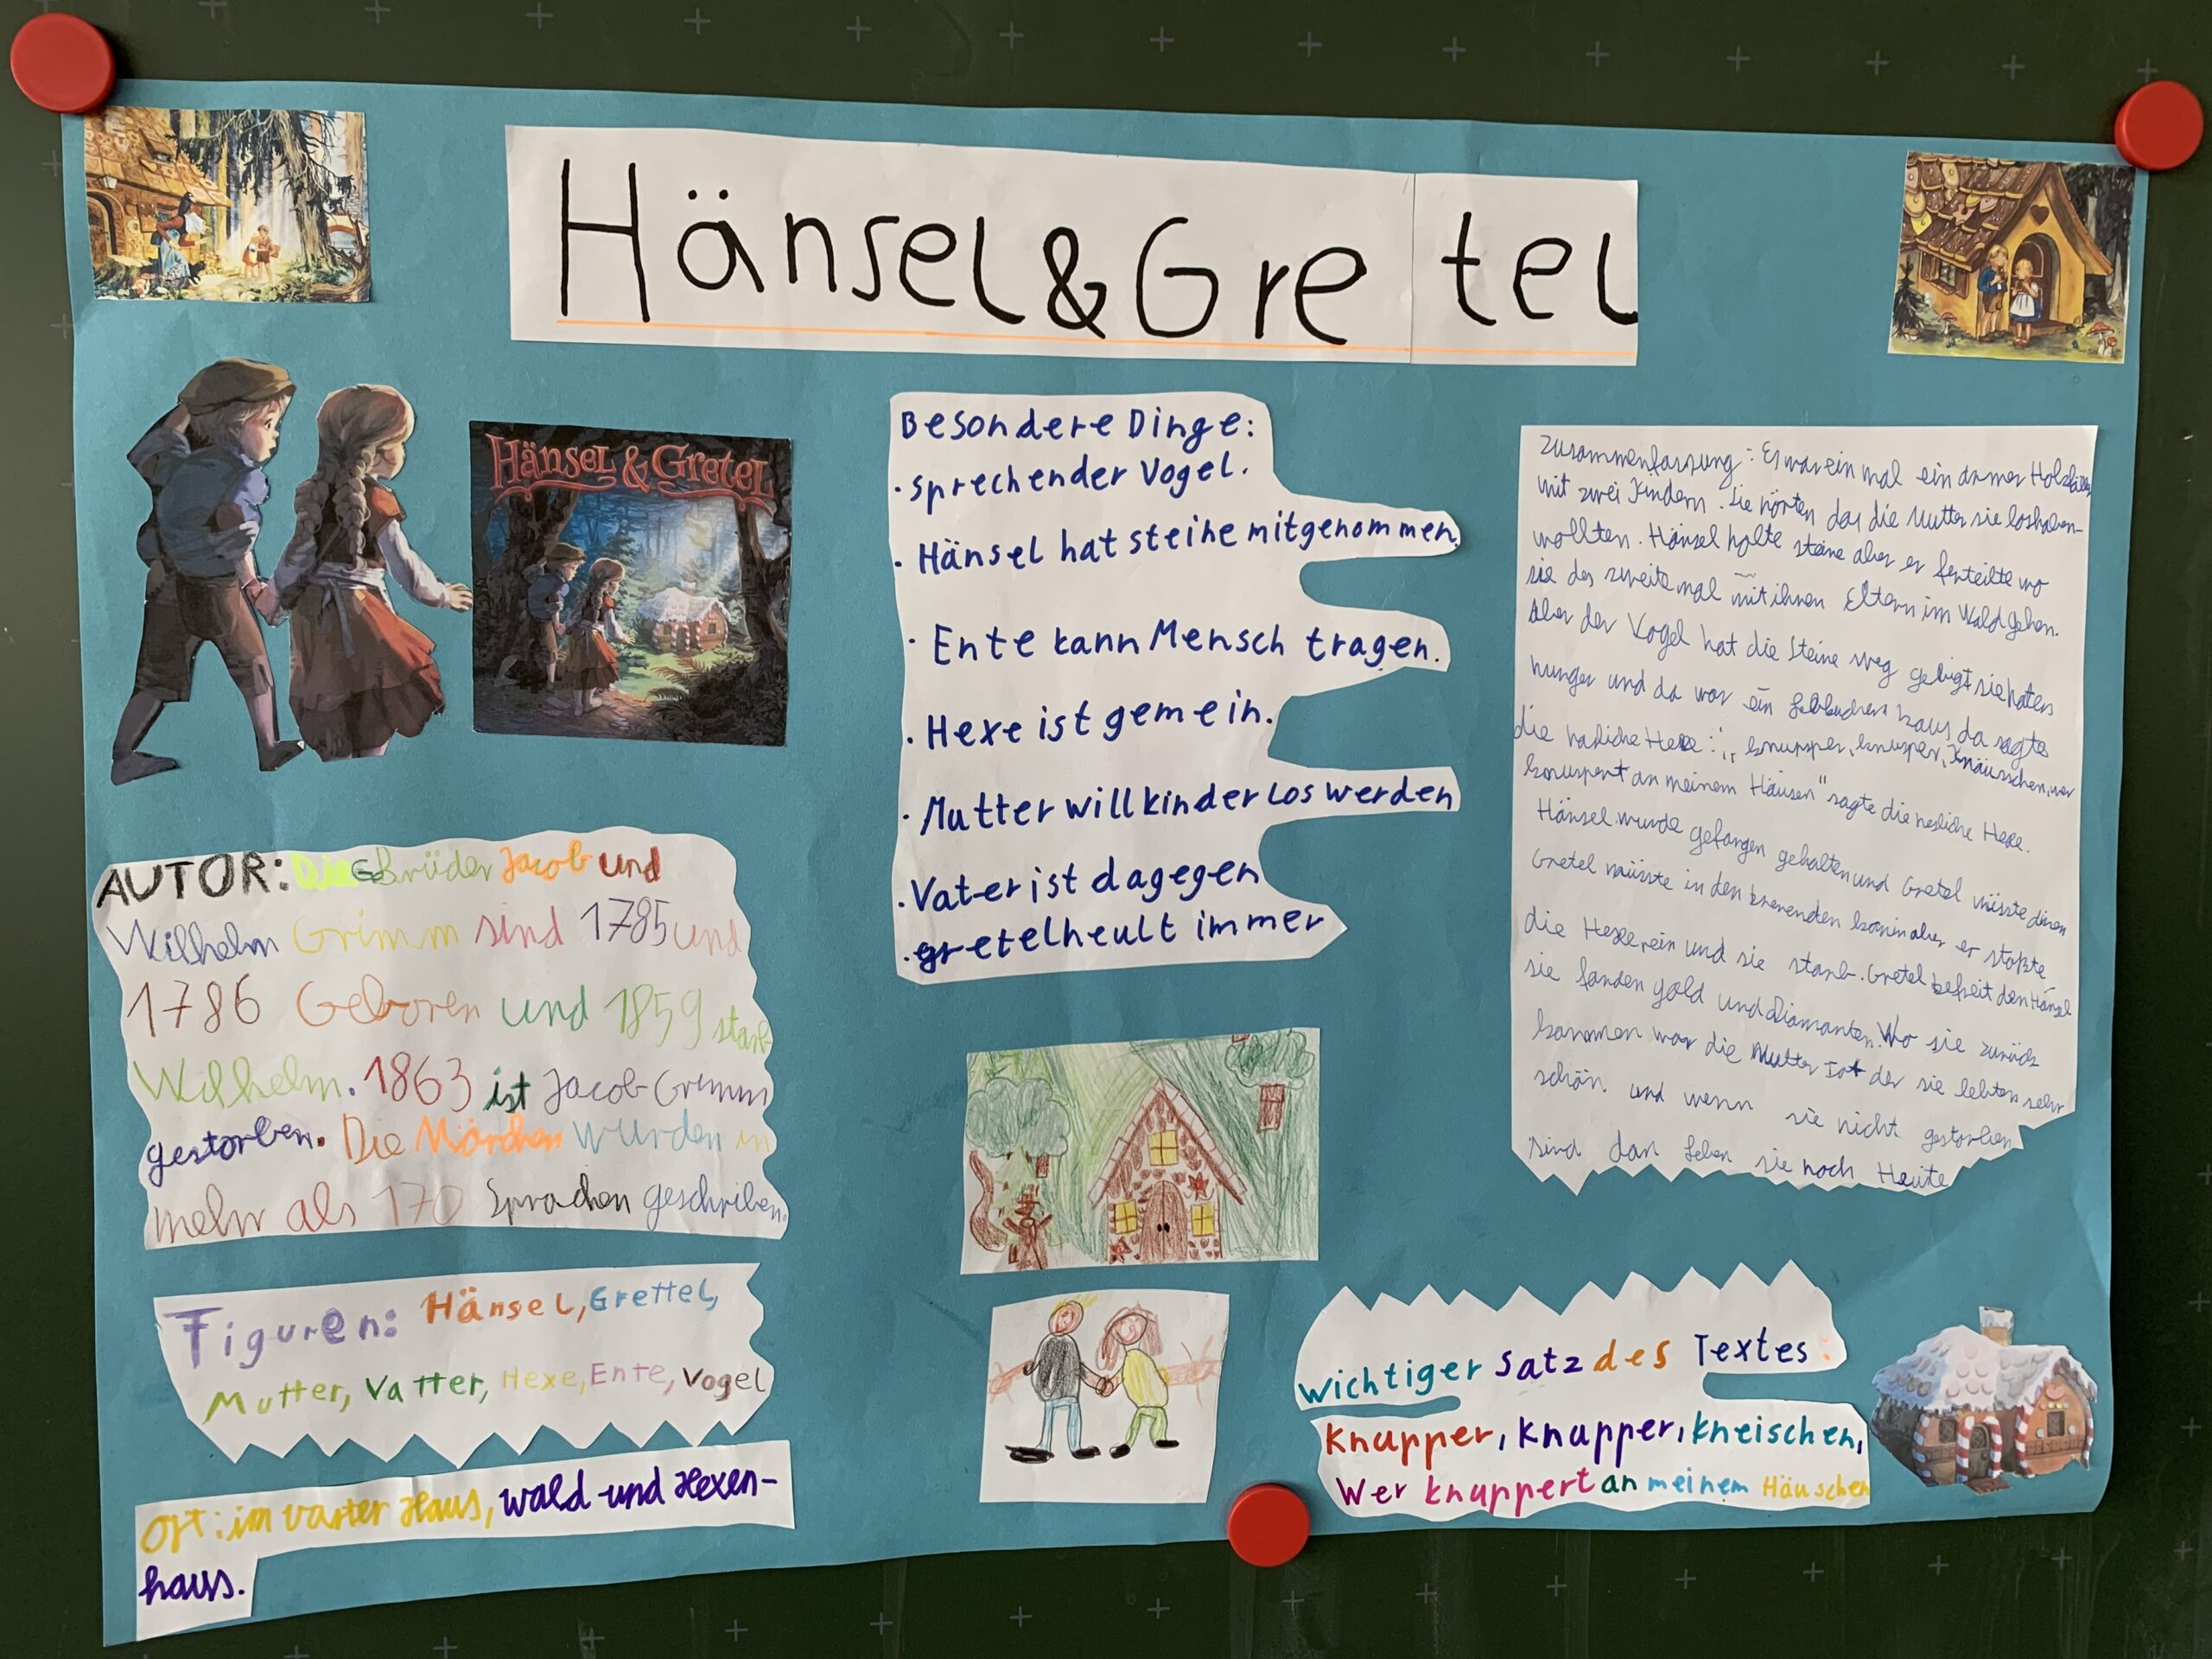 Hänsel & Gretel
Hänsel & Gretel
Besondere Dinge:
· sprechender Vogel.
· Hänsel hat steine mitgenommen.
· Ente kann Mensch tragen.
· Hexe ist gemein.
· Mutter will kinder los werden
· Vater ist dagegen
· gretel heult immer
Zusammenfassung: Es war ein mal ein armer Holzfäller
mit zwei Kindern. Sie hörten das die Mutter sie loshaben-
wollten. Hänsel holte steine aber er ferteilte wo
sie das zweite mal mit ihren Eltern im Wald gehen.
Aber der Vogel hat die Steine weg sie haten
hunger und da war ein haus da sagte
die Hexe: „knupper, knusper, Knäuschen, wer
knuspert an meinem Häusen" sagte die hesliche Hexe.
Hänsel wurde gefangen gehalten und Gretel müsste dinen
Gretel müsste in den kamin aber er stoßte
die Hexe rein und sie starb. Gretel befreit den Hänsel
sie fanden gold und Diamanten. Wo sie zurück
kammen war die Mutter Tot der sie lebten sehr
schön. und wenn sie nicht gestorben
sind dan Leben sie noch Heute
AUTOR: Die Gbrüder Jacob und
Wilhelm Grimm sind 1785 und
1786 Geboren und 1859 starb
Wilhelm. 1863 ist Jacob Grimm
gestorben. Die Märchen wurden in
mehr als 170 Sprachen geschriben.
Figuren: Hänsel, Grettel,
Mutter, Vatter, Hexe, Ente, Vogel
Ort: im varter Haus, wald und Hexen-
haus.
wichtiger Satz des Textes:
Knupper, Knupper, kneischen,
Wer knuppert an meinem Häuschen